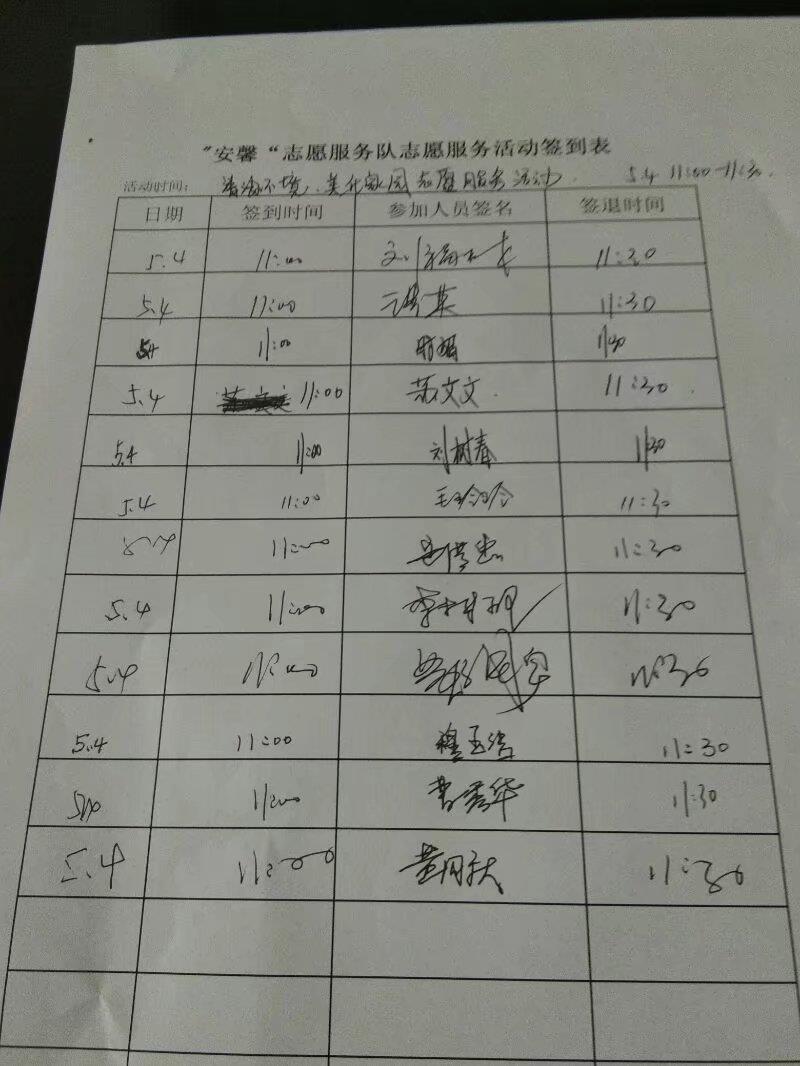 "安馨"志愿服务队志愿服务活动签到表
活动时间: 清洁环境,美化家园志愿服务活动. 5.4 11:00-11:30.
日期 签到时间 参加人员签名 签退时间
5.4 11:00 11:30
5.4 11:00 11:30
5.4 11:00 11:30
5.4 11:00 苏文文 11:30
5.4 11:00 刘树春 11:30
5.4 11:00 11:30
5.4 11:00 11:30
5.4 11:00 11:30
5.4 11:00 11:30
5.4 11:00 11:30
5.4 11:00 曹秀华 11:30
5.4 11:00 11:30